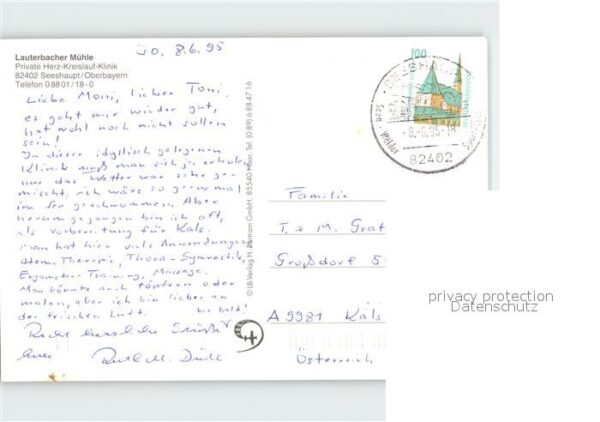 Do. 8.6.95
Lauterbacher Mühle
Private Herz-Kreislauf-Klinik
82402 Seeshaupt/Oberbayern
Telefon 08801/18-0
Liebe Moni, lieber Toni.
es geht mir wieder gut,
hat wohl noch nicht sollen
sein!
In dieser idyllisch gelegenen
Klinik muß man sich ja erholen
nur das Wetter war sehr ge-
mischt, ich wäre so gerne mal
im See geschwommen. Aber
herumgegangen bin ich oft,
als Vorbereitung für Kals.
Man hat hier viele Anwendungen
Atem-Therapie, Thera-Gymnastik,
Ergometer-Training, Massage.
Man könnte auch töpfern oder
malen, aber ich bin lieber an
der frischen Luft. bis bald!
Recht herzliche Grüße
Ruth M.
© LB-Verlag H. GmbH, 85540 Haar, Tel. (089) 6 88 47 16
100
SEESHAUPT
8.-6.95-18
82402
Familie
T. u M. Graf
Großdorf 5
A 9981 Kals
Österreich
privacy protection
Datenschutz